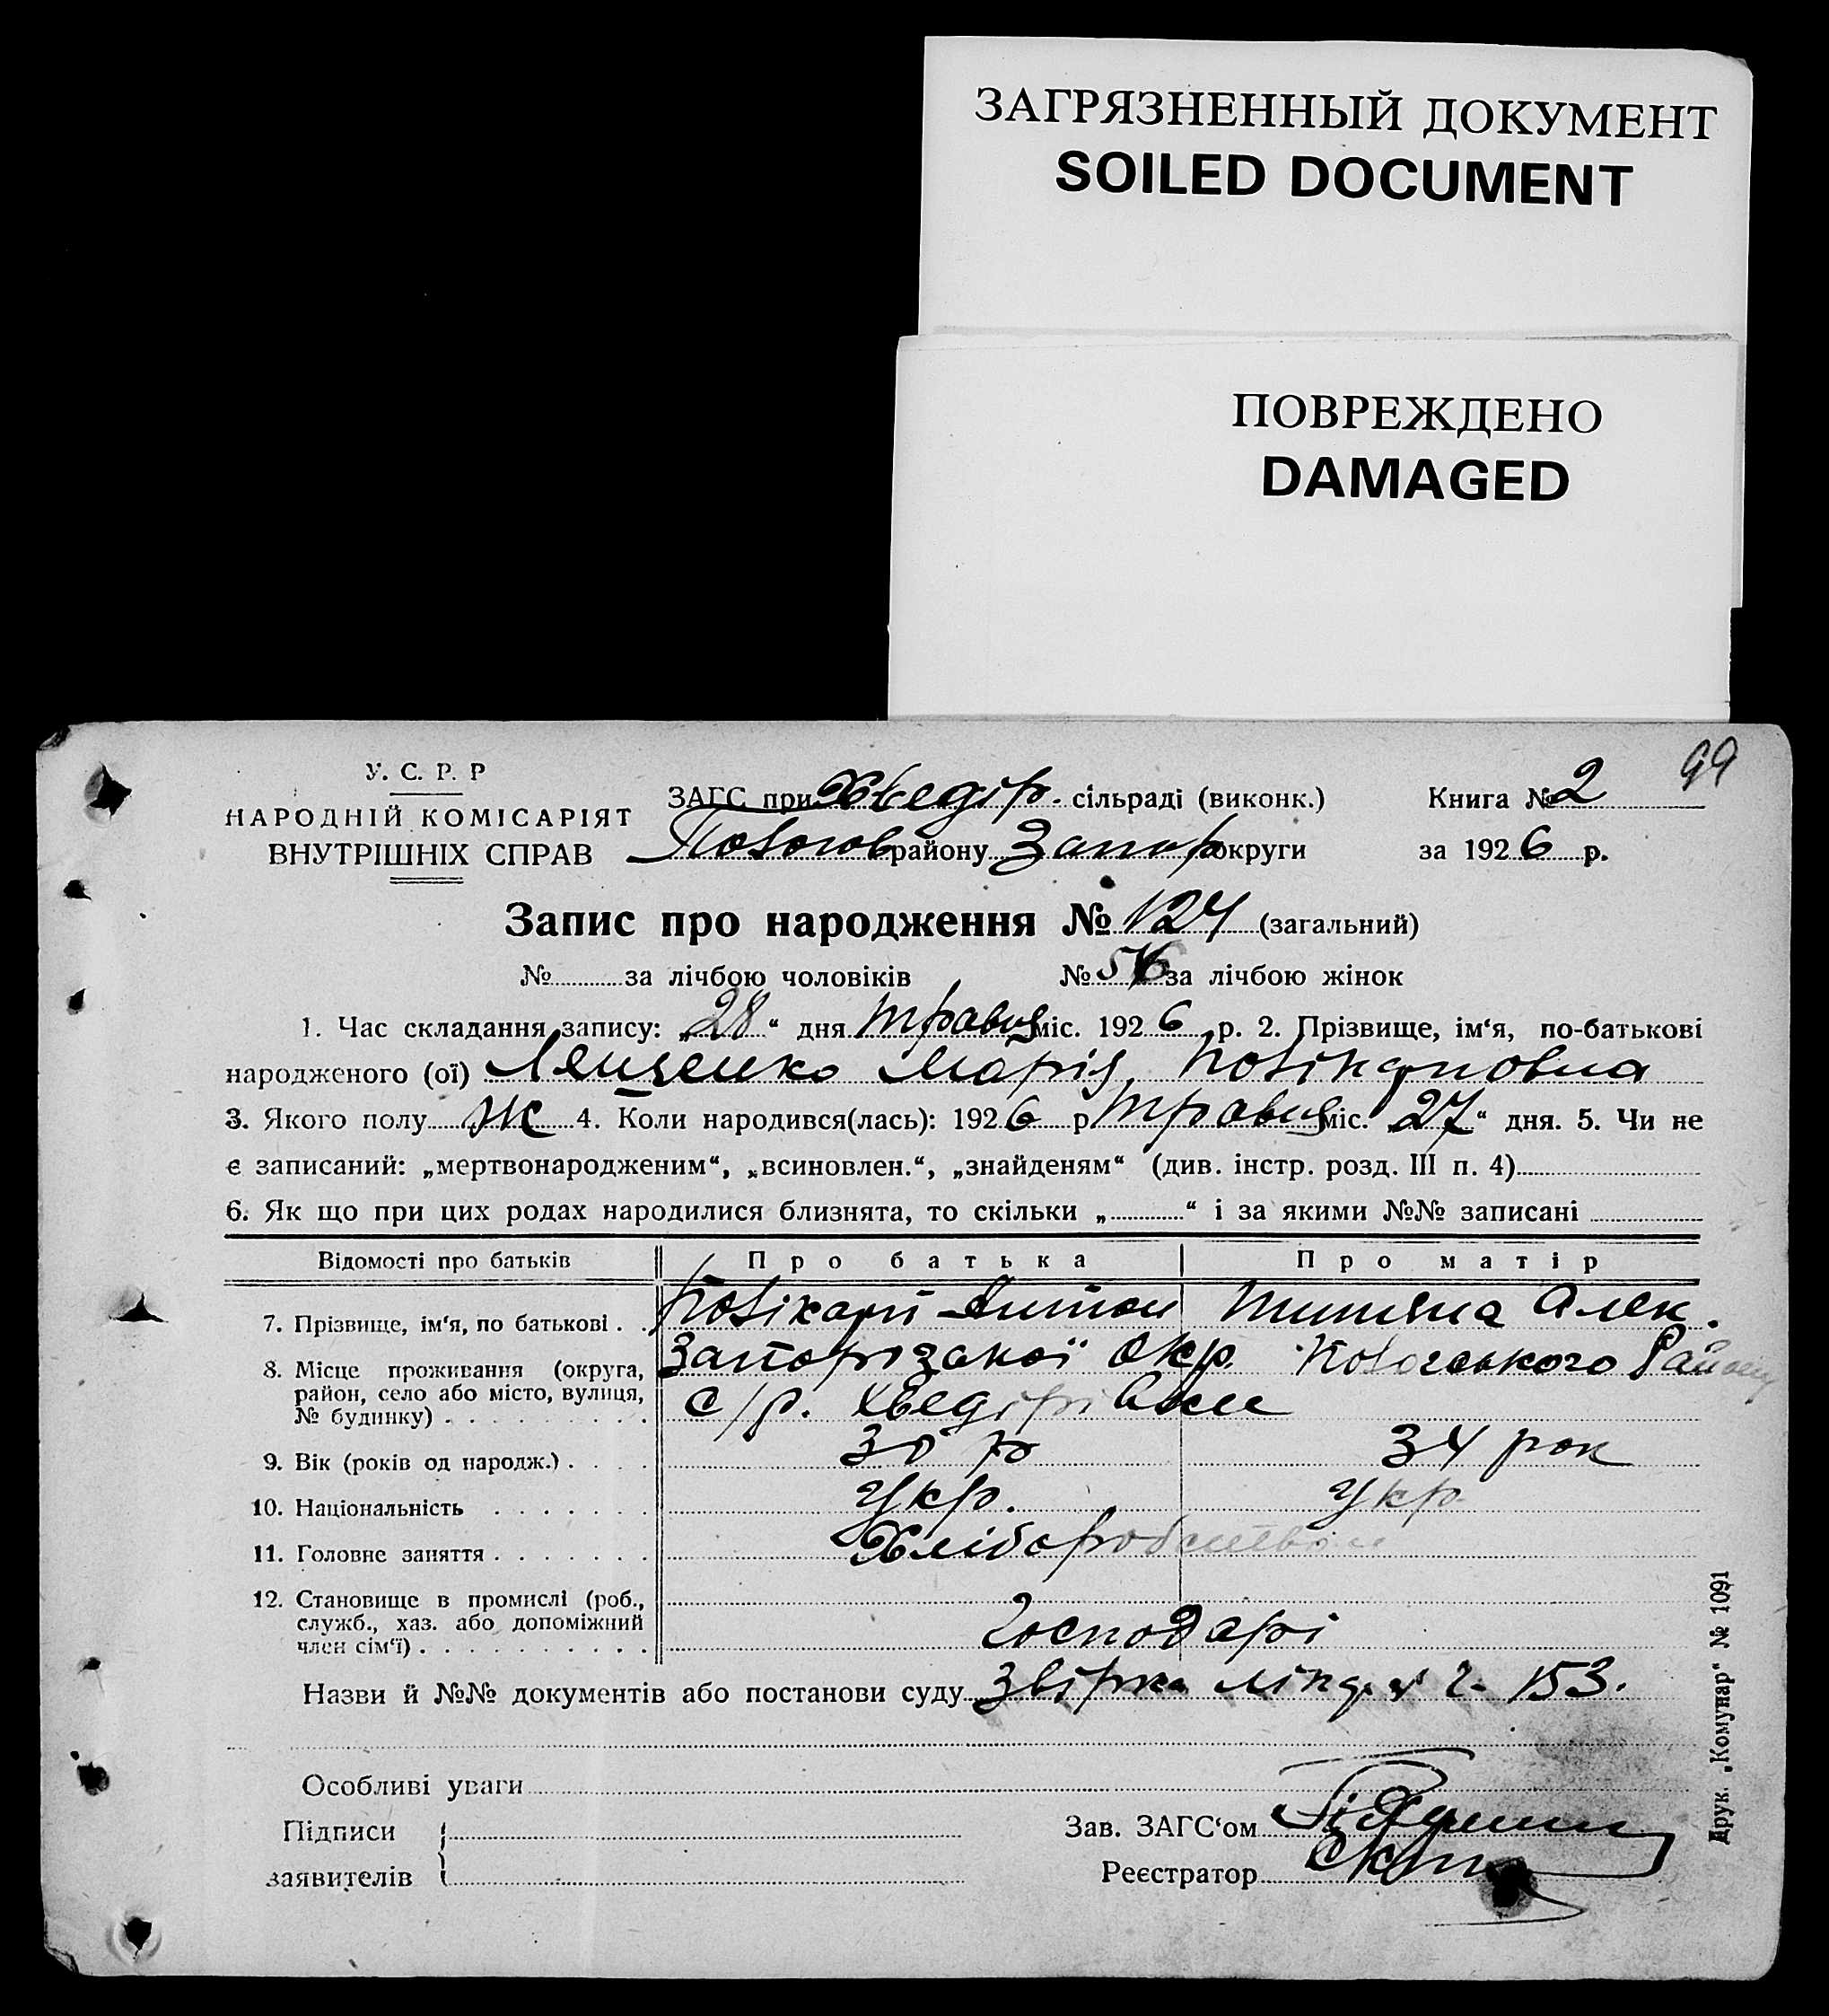 ЗАГРЯЗНЕННЫЙ ДОКУМЕНТ
SOILED DOCUMENT
ПОВРЕЖДЕНО
DAMAGED
99
У. С. Р. Р
НАРОДНІЙ КОМІСАРІЯТ
ВНУТРІШНІХ СПРАВ
ЗАГС при Хведір. сільраді (виконк.) Книга № 2
Пологов району Запор округи за 1926 р.
Запис про народження № 124 (загальний)
№ за лічбою чоловіків № за лічбою жінок
1. Час складання запису: „28“ дня травня міс. 1926 р. 2. Прізвище, ім‘я, по-батькові
народженого (ої) Лященко Марія,
3. Якого полу Ж 4. Коли народився(лась): 1926 р травня міс. „27“ дня. 5. Чи не
є записаний: „мертвонародженим“, „всиновлен.“, „знайденям“ (див. інстр. розд. III п. 4)
6. Як що при цих родах народилися близнята, то скільки „ “ і за якими №№ записані
Відомості про батьків Про батька Про матір
7. Прізвище, ім‘я, по батькові Полікарп Антон Алек.
8. Місце проживання (округа, Запорізької Окр. Пологського Району
район, село або місто, вулиця, с/р. Хведірівки
№ будинку)
9. Вік (років од народж.) 34 рок
10. Національність Укр. Укр.
11. Головне заняття Хлібороб
12. Становище в промислі (роб.,
служб., хаз. або допоміжний Господарі
член сім‘ї)
Назви й №№ документів або постанови суду Звірка 153.
Особливі уваги
Підписи
заявителів
Зав. ЗАГС‘ом
Реєстратор
Друк. „Комунар“ № 1091